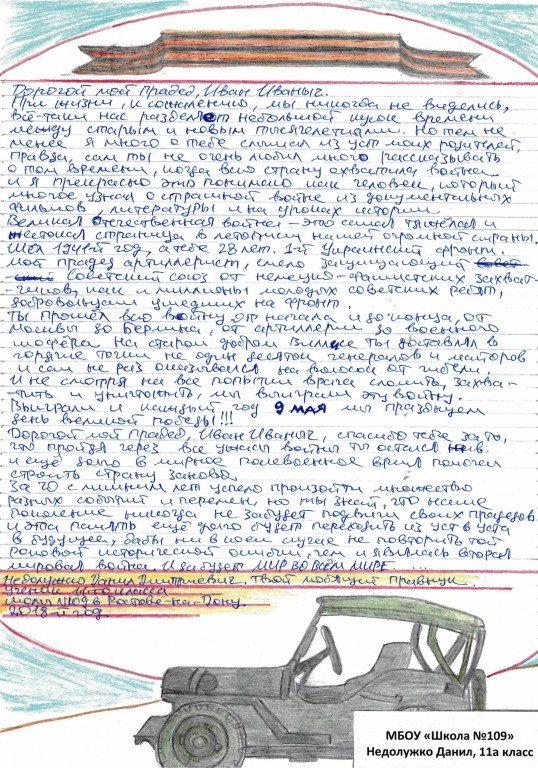 Дорогой мой Прадед, Иван Иваныч.
При жизни, к сожалению, мы никогда не виделись,
всё-таки нас разделяет небольшой кусок времени
между старым и новым тысячелетиями. Но тем не
менее я много о тебе слышал из уст моих родителей,
правда, сам ты не очень любил много рассказывать
о том времени, когда всю страну охватила война.
и я прекрасно это понимаю как человек, который
многое узнал о страшной войне из документальных
фильмов, литературы и на уроках истории.
Великая Отечественная война - это самая тяжёлая и
жестокая страница в летописи нашей огромной страны.
Шёл 1941-й год, а тебе 28 лет. 1-й Украинский фронт.
мой прадед артиллерист, смело защищающий
Советский союз от немецко-фашистских захват-
чиков, как и миллионы молодых советских ребят,
добровольцами ушедших на фронт.
Ты прошёл всю войну от начала и до конца, от
Москвы до Берлина, от артиллерии до военного
шофёра. На старом добром Виллисе ты доставлял в
горячие точки не один десяток генералов и майоров
и сам не раз оказывался на волоске от гибели.
И не смотря на все попытки врага сломить, захва-
-тить и уничтожить, мы выиграли эту войну.
Выиграли и каждый год 9 мая мы празднуем
день великой победы!!!
Дорогой мой Прадед, Иван Иваныч, спасибо тебе за то,
что пройдя через все ужасы войны ты остался жив.
и ещё долго в мирное послевоенное время помогал
строить страну заново.
За 70 с лишним лет успело произойти множество
разных событий и перемен, но ты знай, что наше
поколение никогда не забудет подвиги своих прадедов
и эта память ещё долго будет переходить из уст в уста
в будущее, дабы ни в коем случае не повторить той
роковой исторической ошибки, чем и явилась вторая
мировая война. И да будет МИР ВО ВСЁМ МИРЕ....
Недолужко Данил Дмитриевич. Твой любящий правнук.
ученик 11 "а" класса
школы №109 в Ростове-на-Дону.
2018-й год.
МБОУ «Школа №109»
Недолужко Данил, 11а класс